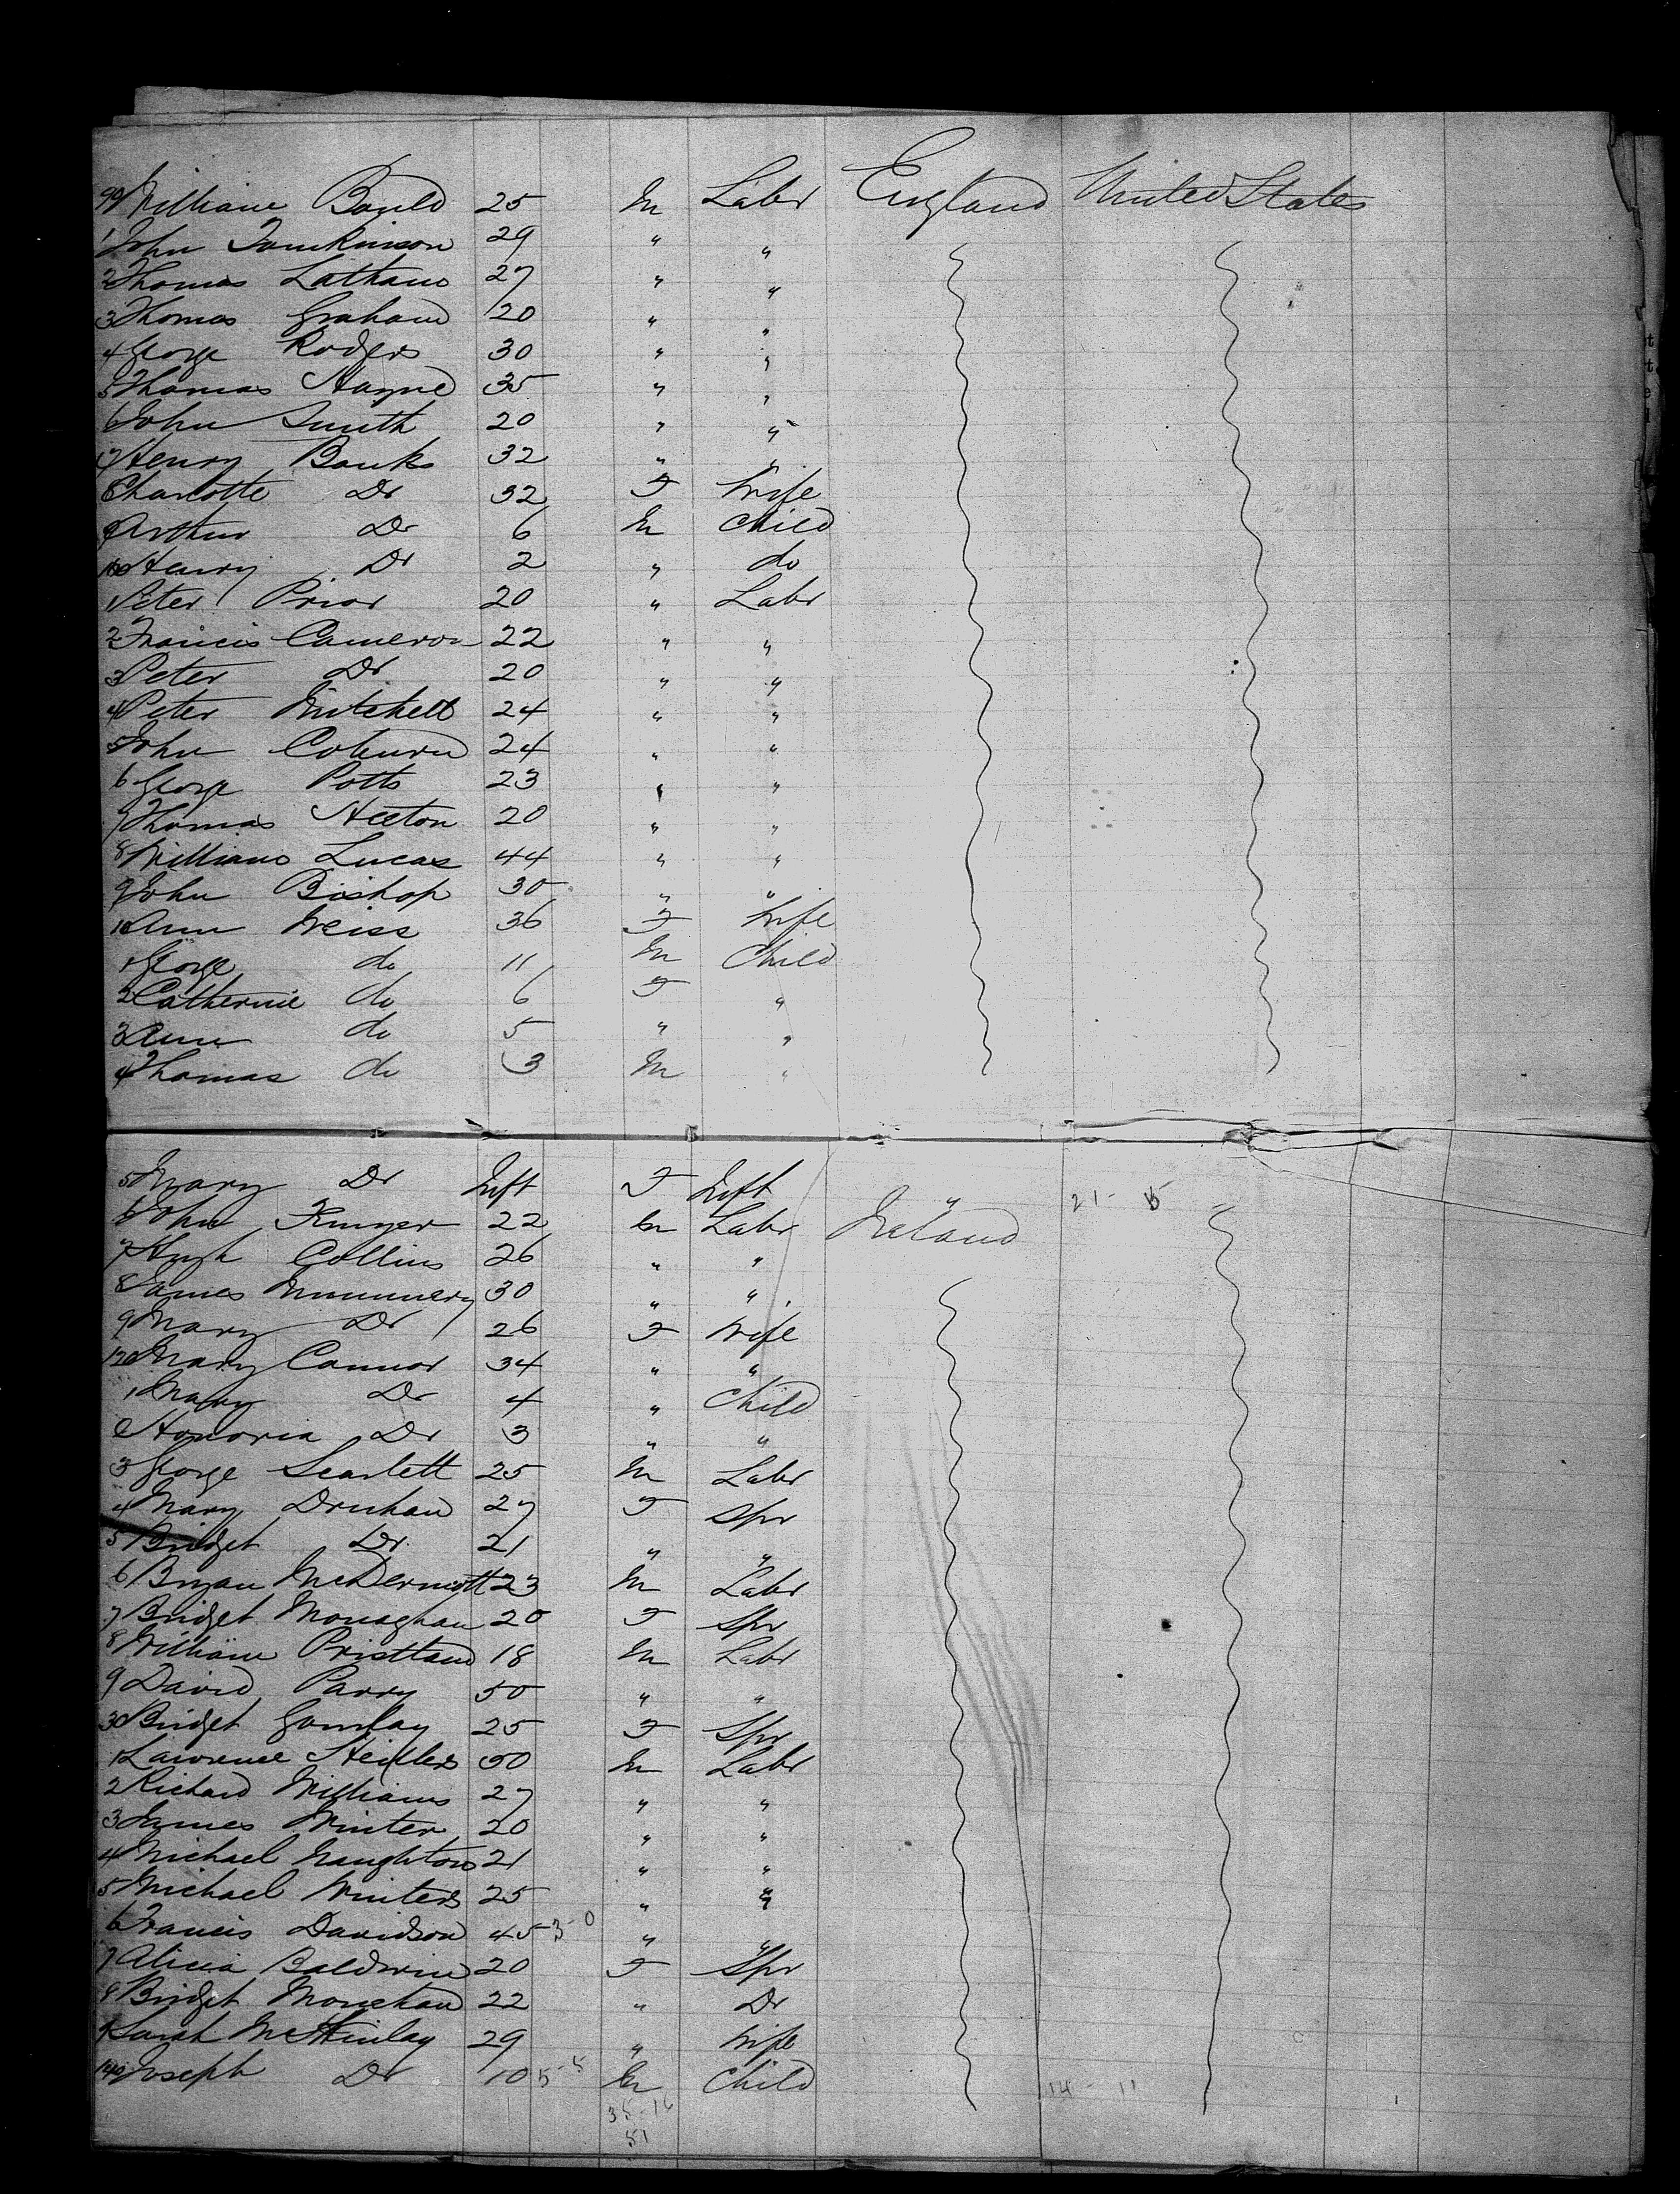 90 William Bould 25 M Labr England United States
1 John Tomkinson 29 " "
2 Thomas Latham 27 " "
3 Thomas Graham 20 " "
4 George Rodgers 30 " "
5 Thomas Hayne 35 " "
6 John Smith 20 " "
7 Henry Banks 32 " "
8 Charlotte Do 32 F Wife
9 Arthur Do 6 M Child
100 Henry Do 2 " do
1 Peter Prior 20 " Labr
2 Francis Cameron 22 " "
3 Peter Do 20 " "
4 Peter Mitchell 24 " "
5 John Coburn 24 " "
6 George Potts 23 " "
7 Thomas 20 " "
8 William Lucas 44 " "
9 John Bishop 30 " "
10 Ann Weiss 36 F Wife
1 George do 11 M Child
2 Catherine do 6 F "
3 Ann do 5 " "
4 Thomas do 3 M "
5 Mary Do Inft F Inft " 21-5
6 John 22 M Labr Ireland
7 Hugh Collins 26 " "
8 James Nummery 30 " "
9 Mary Do 26 F Wife
120 Mary Connor 34 " "
1 Mary Do 4 " Child
2 Honoria Do 3 " "
3 George Scarlett 25 M Labr
4 Mary Druhan 27 F Spr
5 Bridget Do 21 " "
6 Bryan McDermott 23 M Labr
7 Bridget Monaghan 20 F Spr
8 William 18 M Labr
9 David Parry 50 " "
30 Bridget 25 F Spr
1 Lawrence 50 M Labr
2 Richard Williams 27 " "
3 James Winter 20 " "
4 Michael Naughton 21 " "
5 Michael Winters 25 " "
6 Francis Davidson 45 3-0 " "
7 Alicia Baldwin 20 F Spr
8 Bridget Monehan 22 " Do
9 Sarah McKinlay 29 " Wife
140 Joseph Do 10 5-5 M Child 14-11
35-16
51